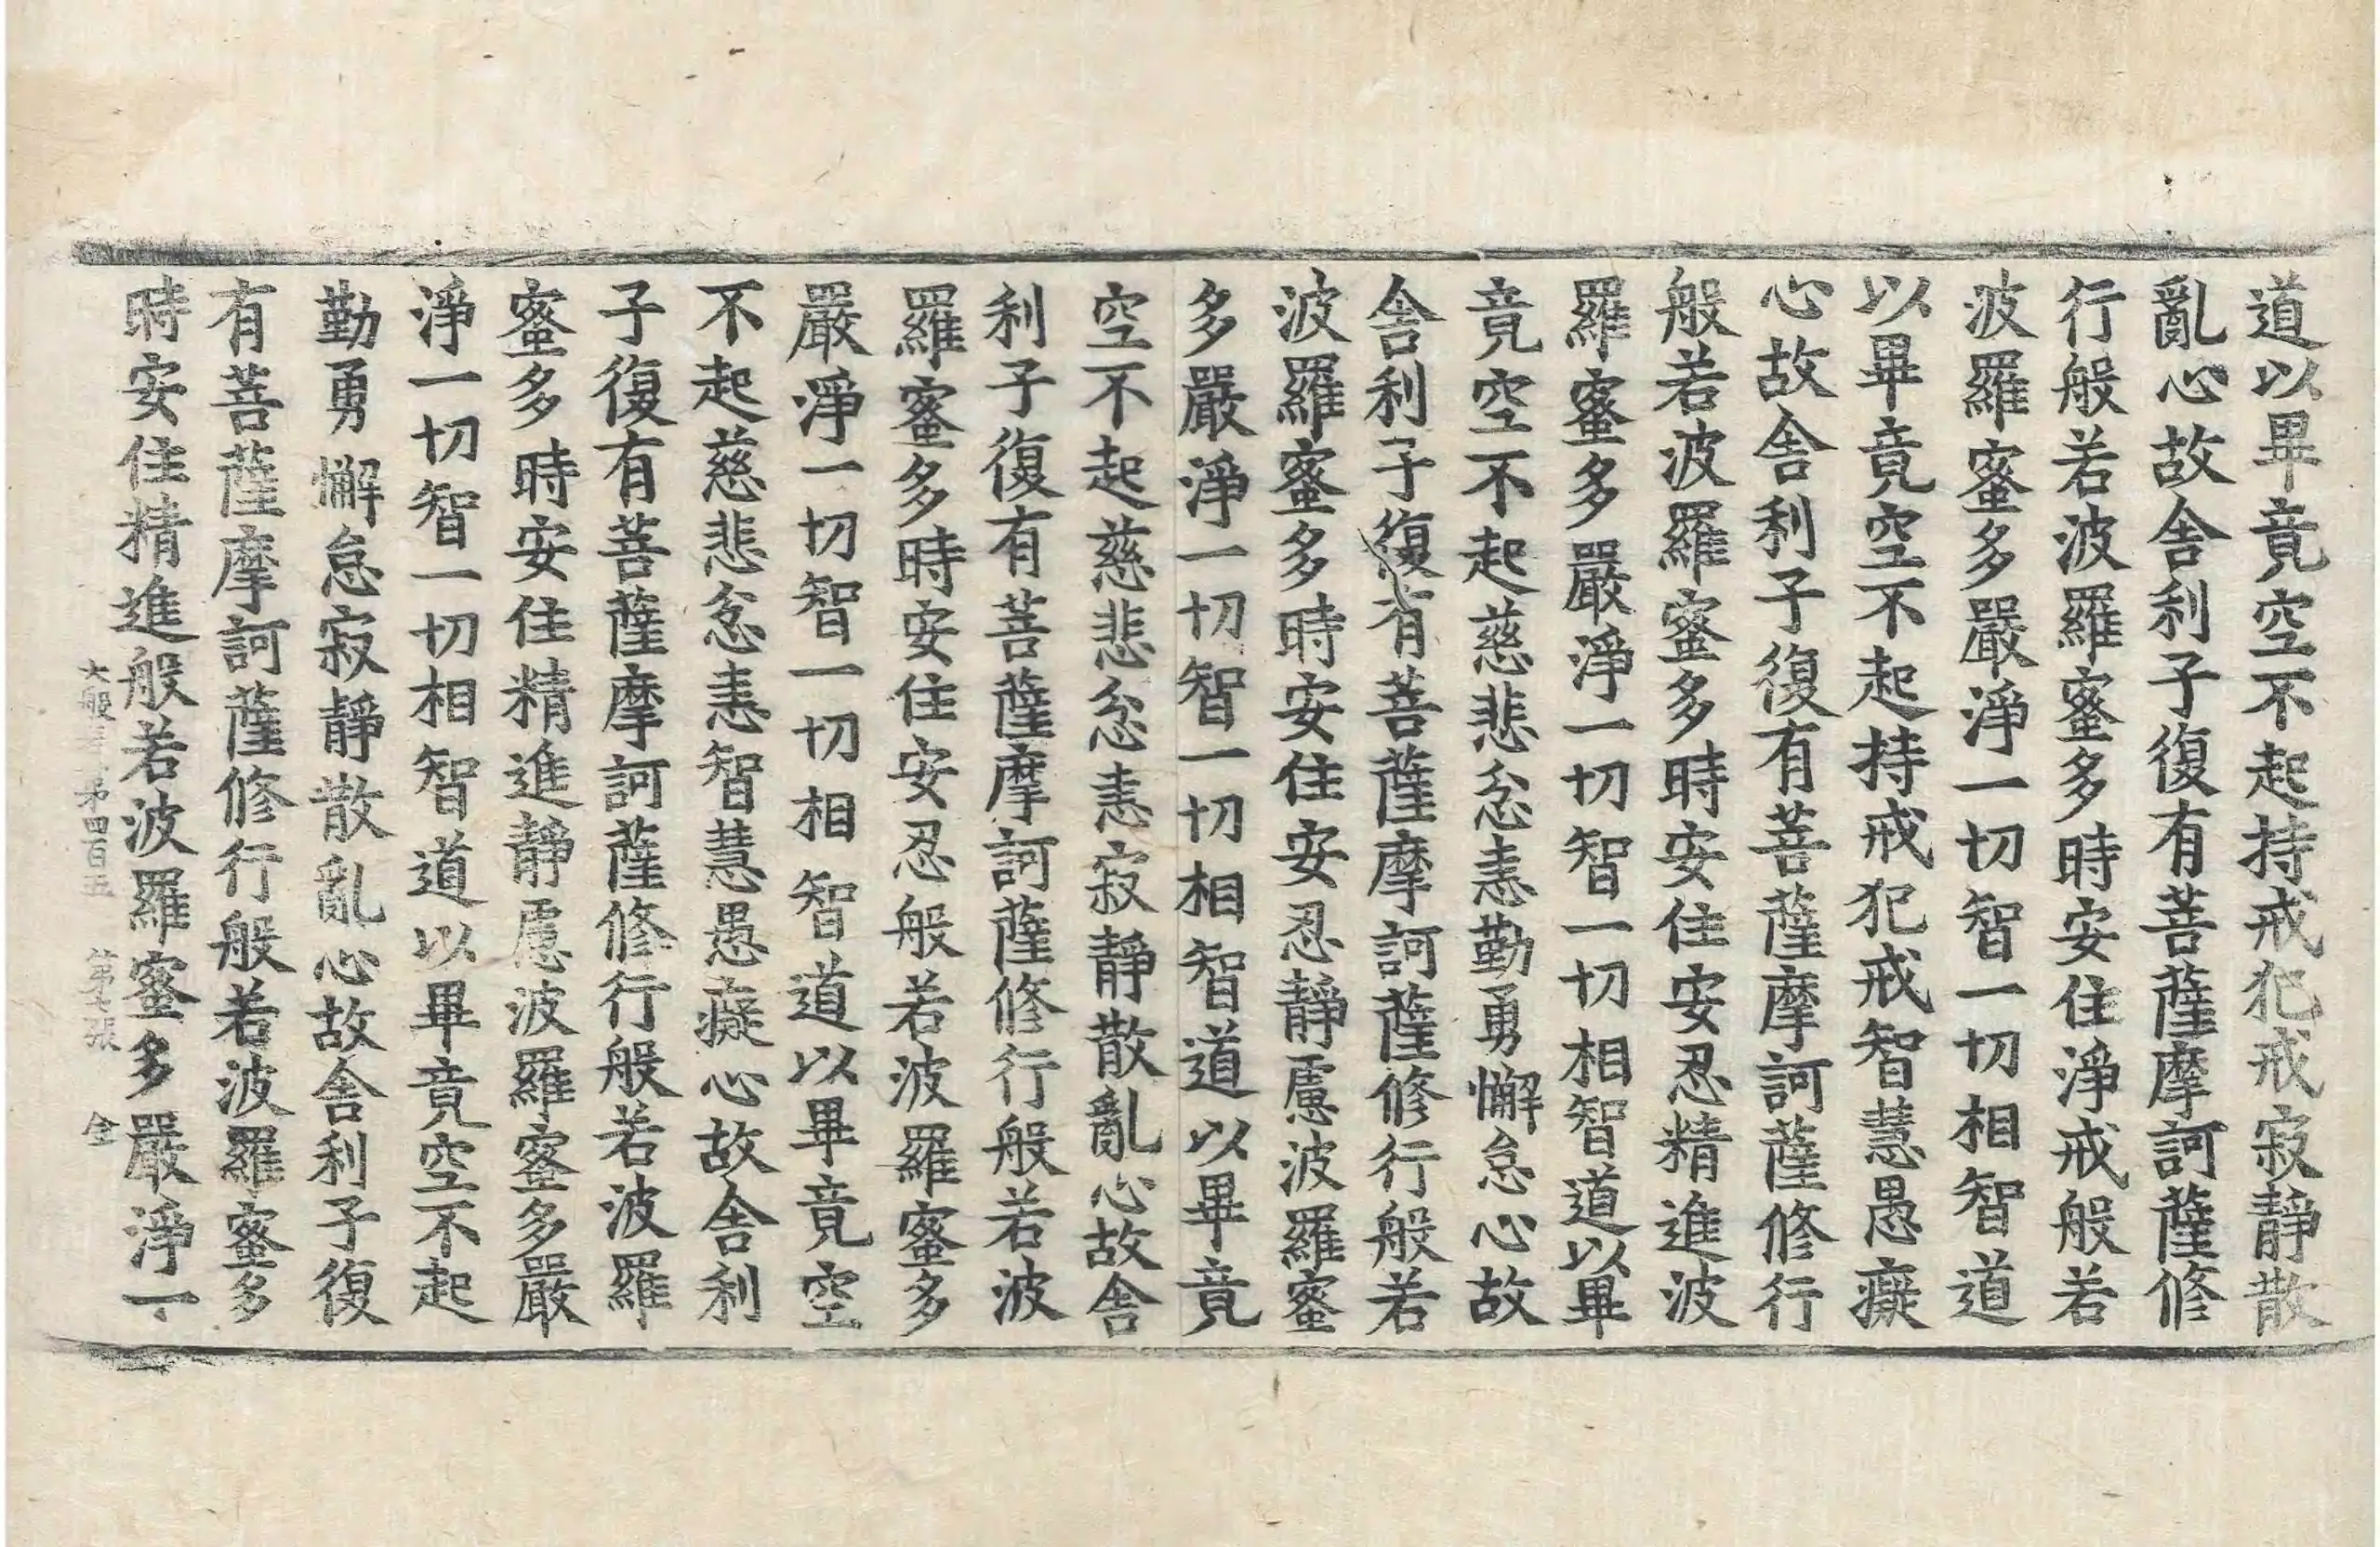 道以畢竟空不起持戒犯戒寂靜散
亂心故舍利子復有菩薩摩訶薩修
行般若波羅蜜多時安住淨戒般若
波羅蜜多嚴淨一切智一切相智道
以畢竟空不起持戒犯戒智慧愚癡
心故舍利子復有菩薩摩訶薩修行
般若波羅蜜多時安住安忍精進波
羅蜜多嚴淨一切智一切相智道以畢
竟空不起慈悲忿恚勤勇懈怠心故
舍利子復有菩薩摩訶薩修行般若
波羅蜜多時安住安忍靜慮波羅蜜
多嚴淨一切智一切相智道以畢竟
空不起慈悲忿恚寂靜散亂心故舍
利子復有菩薩摩訶薩修行般若波
羅蜜多時安住安忍般若波羅蜜多
嚴淨一切智一切相智道以畢竟空
不起慈悲忿恚智慧愚癡心故舍利
子復有菩薩摩訶薩修行般若波羅
蜜多時安住精進靜慮波羅蜜多嚴
淨一切智一切相智道以畢竟空不起
勤勇懈怠寂靜散亂心故舍利子復
有菩薩摩訶薩修行般若波羅蜜多
時安住精進般若波羅蜜多嚴淨一
大般 苐四百五 第七張 金